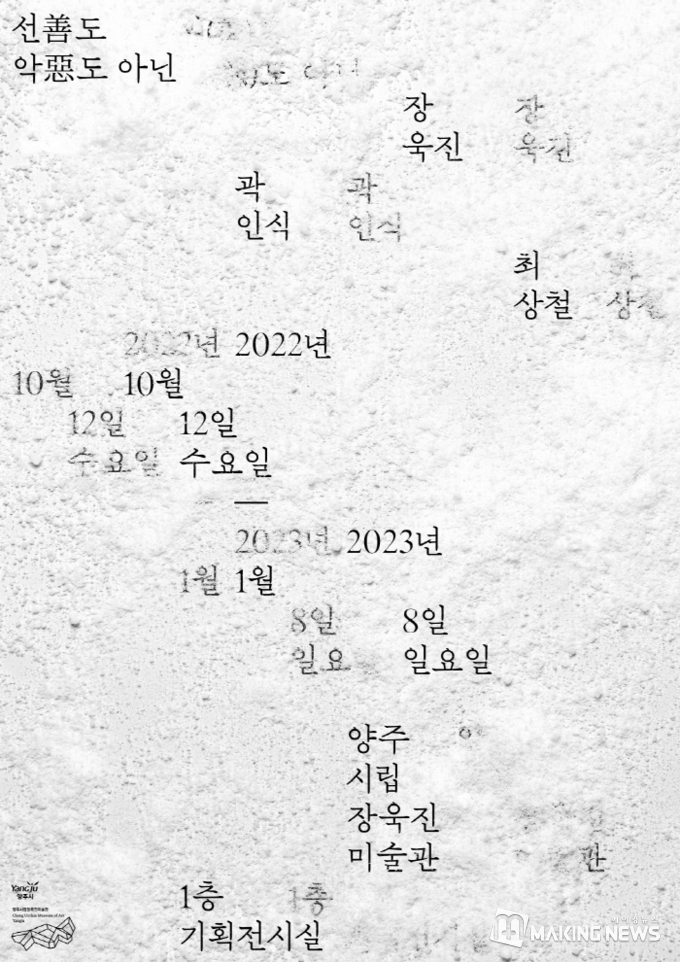 선善도
악惡도 아닌
장 장
욱진 욱진
곽 곽
인식 인식
최
상철 상철
2022년 2022년
10월 10월
12일 12일
수요일 수요일
—
2023년 2023년
1월 1월
8일 8일
일요 일요일
양주
시립
장욱진
미술관 관
1층 1층
기획전시실
Yangju
양주시
양주시립장욱진미술관
Chang Ucchin Museum of Art
Yangju
M MAKING NEWS